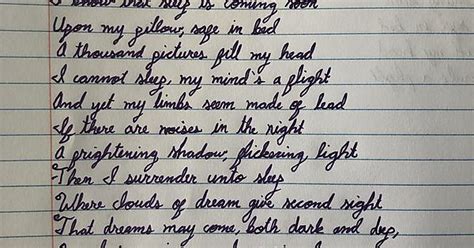 I know that sleep is coming soon
Upon my pillow, safe in bed
A thousand pictures fill my head
I cannot sleep, my mind's a flight
And yet my limbs seem made of lead
If there are noises in the night
A frightening shadow, flickering light
Then I surrender unto sleep
Where clouds of dream give second sight
That dreams may come, both dark and deep,